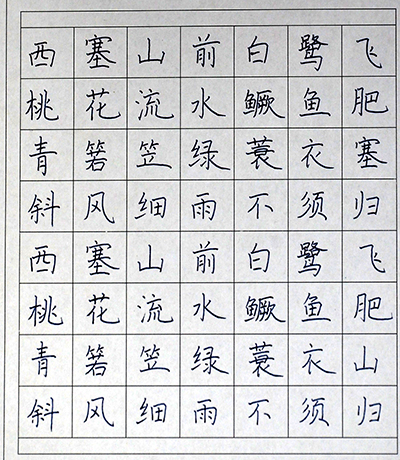 西塞山前白鹭飞
桃花流水鳜鱼肥
青箬笠绿蓑衣塞
斜风细雨不须归
西塞山前白鹭飞
桃花流水鳜鱼肥
青箬笠绿蓑衣山
斜风细雨不须归